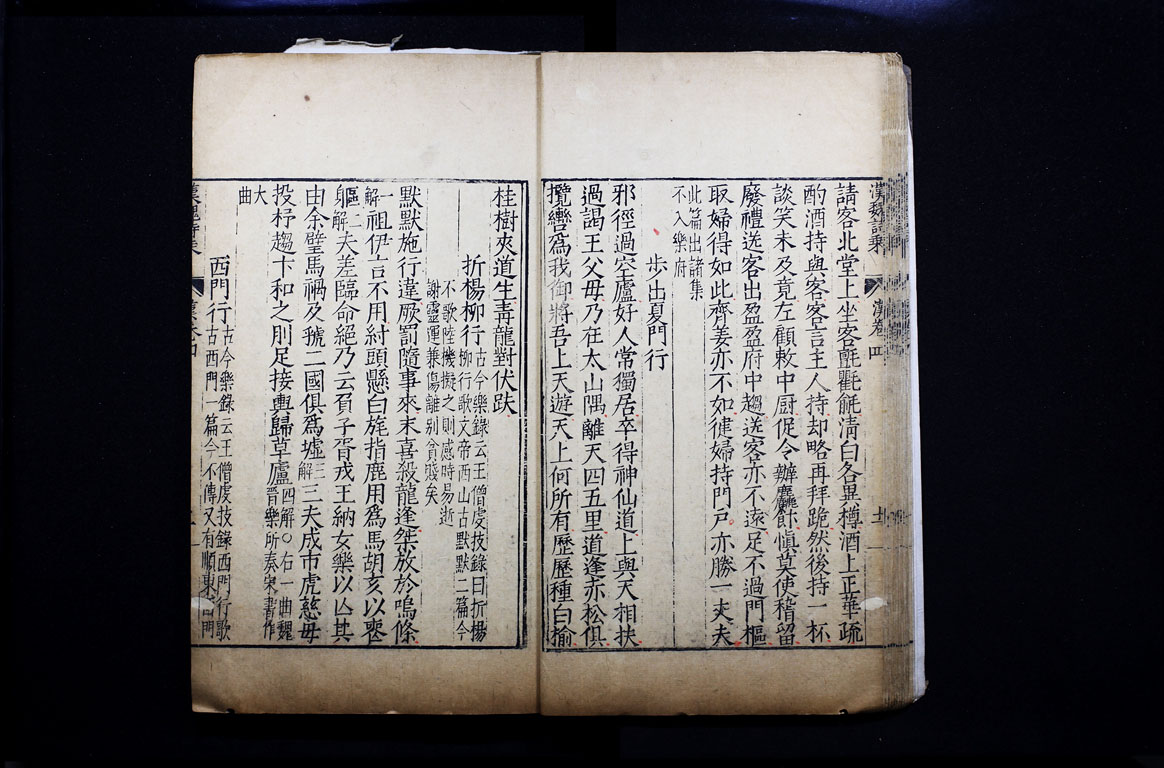 漢魏詩乘 漢卷四 十一
請客北堂上坐客氈氍毹清白各異樽酒上正華疏
酌酒持與客客言主人持却略再拜跪然後持一杯
談笑未及竟左顧敕中厨促令辦麤飰慎莫使稽留
廢禮送客出盈盈府中趨送客亦不遠足不過門樞
取婦得如此齊姜亦不如徤婦持門戸亦勝一夫夫
此篇出諸集
不入樂府
步出夏門行
邪徑過空廬好人常獨居卒得神仙道上與天相扶
過謁王父毋乃在太山隅離天四五里道逢赤松俱
攬轡爲我御將吾上天遊天上何所有歷歷種白榆
桂樹夾道生青龍對伏趺
折楊柳行古今樂錄云王僧虔技錄曰折揚
柳行歌文帝西山古默默二篇今
不歌陸機擬之則感時易逝
謝靈運兼傷離别貧賤矣
默默施行違厥罰隨事來末喜殺龍逢桀放於鳴條
一解祖伊言不用紂頭懸白旄指鹿用爲馬胡亥以喪
軀二解夫差臨命絕乃云負子胥戎王納女樂以亾其
由余璧馬禍及虢二國俱爲墟三解三夫成市虎慈毋
投杼趨卞和之刖足接輿歸草廬四解○右一曲魏
晉樂所奏宋書作
大曲
西門行古今樂錄云王僧虔技錄西門行歌
古西門一篇今不傳又有順東門